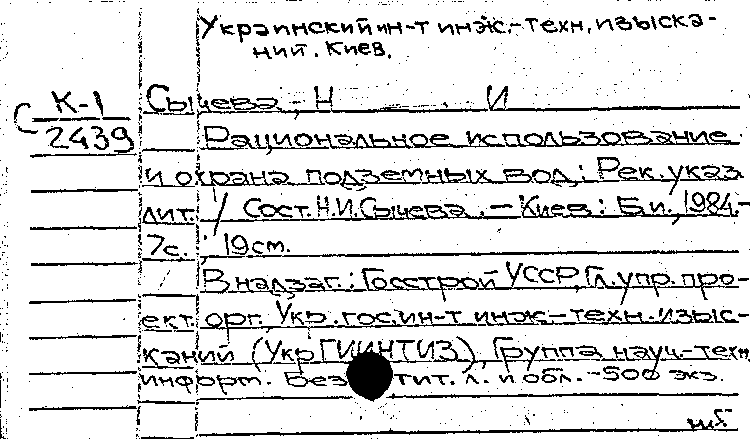 Украинский ин-т инж.-техн. изыска-
ний. Киев.
С К-1
2439
Сычева, Н И
Рациональное использование
и охрана подземных вод: Рек. указ.
лит. / Сост. Н.И. Сычева. - Киев: Б.и., 1984.-
7с.; 19см.
В надзаг.: Госстрой УССР, Гл. упр. про-
ект. орг., Укр. гос. ин-т инж.-техн. изыс-
каний (УкрГИИНТИЗ), Группа науч.-техн.
информ. Без тит. л. и обл. -500 экз.